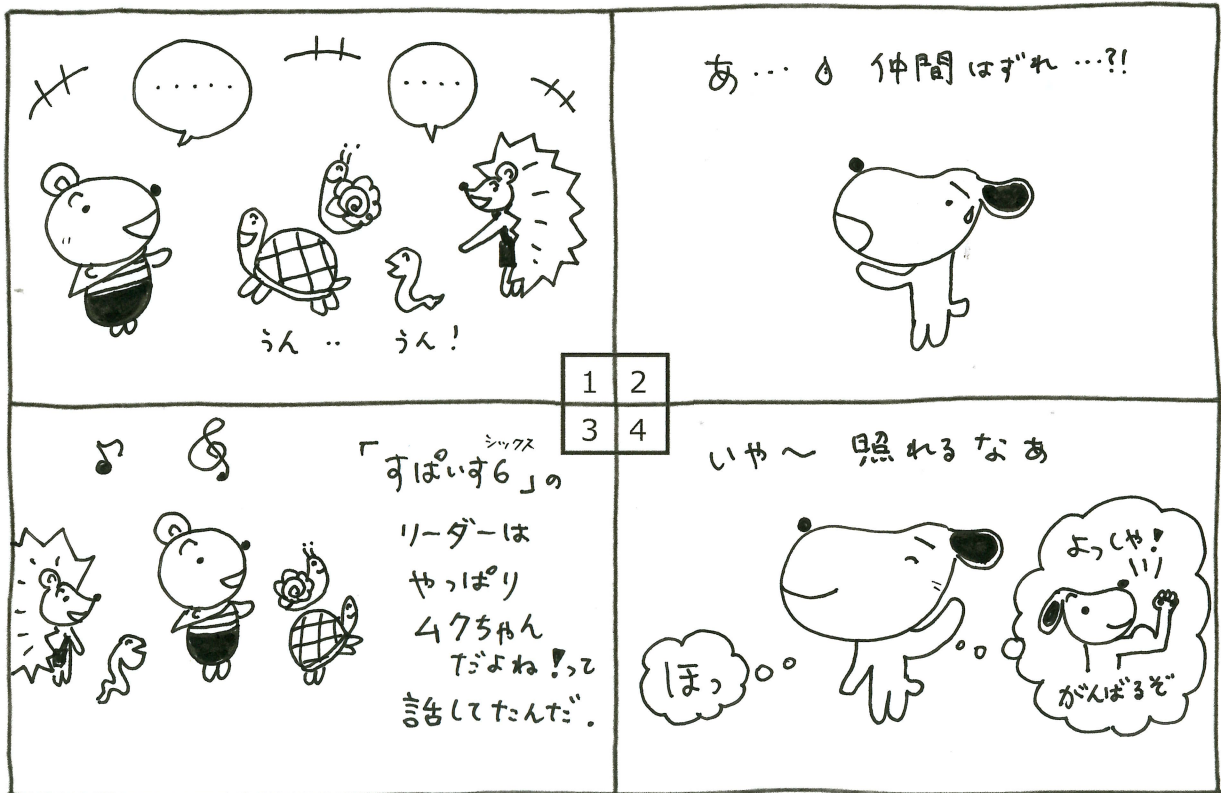 .....
....
うん‥ うん!
あ… 仲間はずれ…?!
1 2
3 4
「すぱいす6」の
シックス
リーダーは
やっぱり
ムクちゃん
だよね!って
話してたんだ.
いや～ 照れるなあ
ほっ
よっしゃ!
がんばるぞ